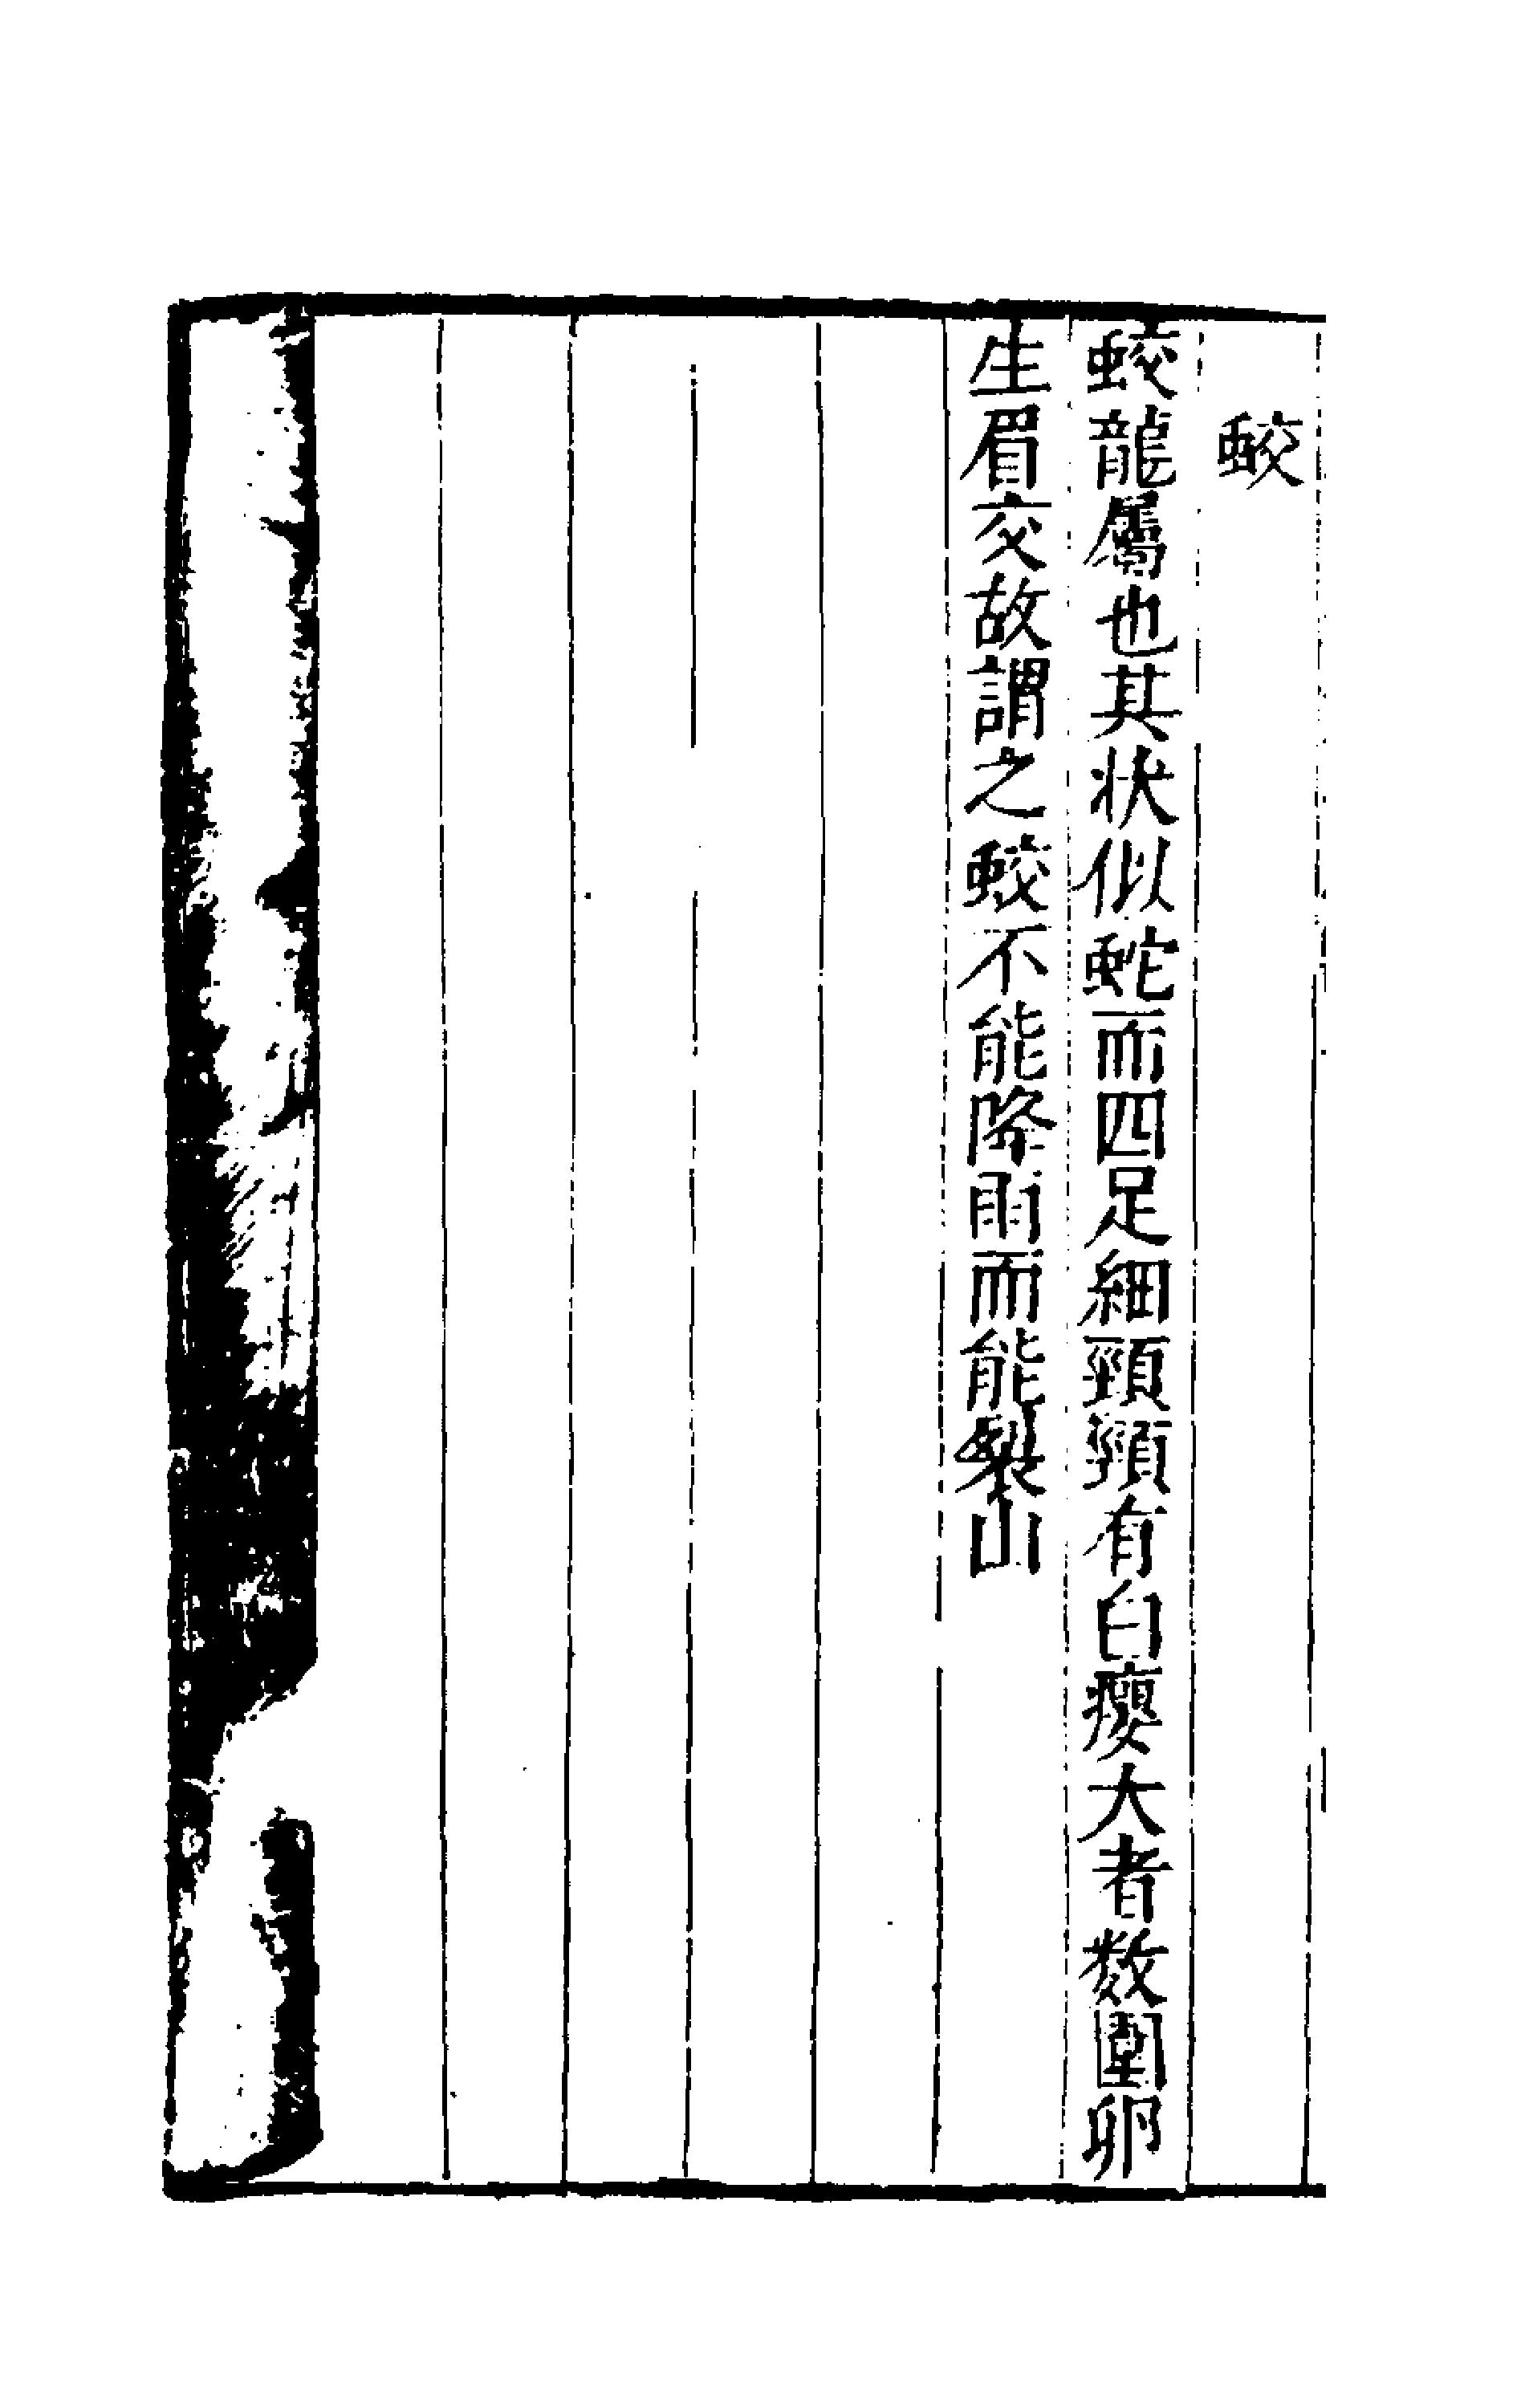 蛟
蛟龍屬也其状似蛇而四足細頸頸有白癭大者数圍卵
生眉交故謂之蛟不能降雨而能裂山